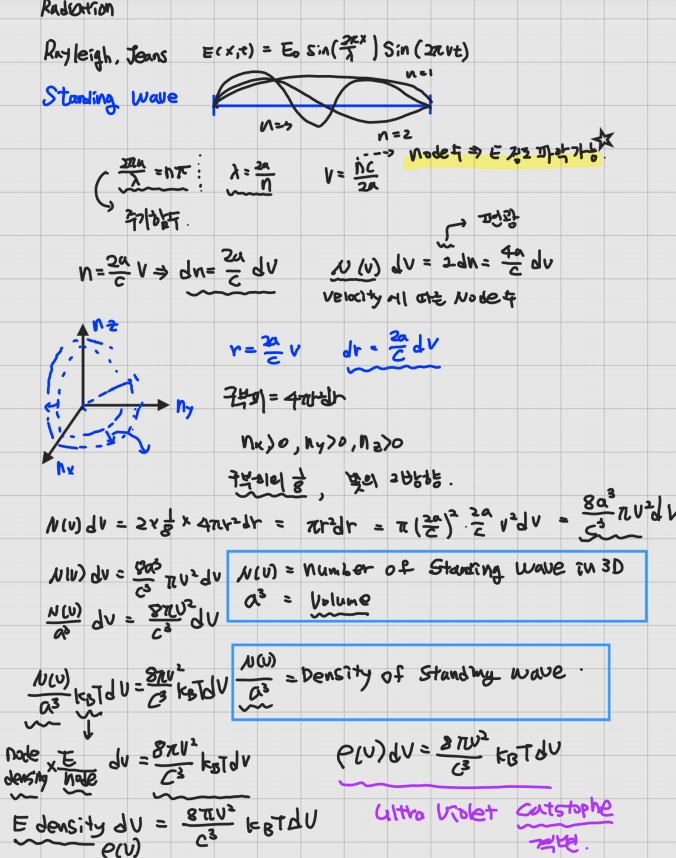 Radiation
Rayleigh, Jeans E(x,t) = E₀ sin(2πx/λ) Sin(2πνt)
Standing Wave
n=1
n=3
n=2
2πa/λ = nπ λ = 2a/n ν = nc/2a node수 ⇒ E 정도 파악가능 ☆
주기함수.
편광
n = 2a/c ν ⇒ dn = 2a/c dν N(ν) dν = 2dn = 4a/c dν
velocity에 따른 Node수
nz
ny
nx
r = 2a/c ν dr = 2a/c dν
구부피 = 4πr²dr
nx>0, ny>0, nz>0
구부피의 1/8, 빛의 2방향.
N(ν)dν = 2×1/8×4πr²dr = πr²dr = π(2a/c)²·2a/c ν²dν = 8a³/c³ πν²dν
N(ν)dν = 8a³/c³ πν²dν
N(ν) = number of Standing wave in 3D
a³ = Volume
N(ν)/a³ dν = 8πν²/c³ dν
N(ν)/a³ k_BT dν = 8πν²/c³ k_BTdν
N(ν)/a³ = Density of Standing wave.
node density × E/node dν = 8πν²/c³ k_BTdν
ρ(ν)dν = 8πν²/c³ k_BTdν
Ultra Violet Catstophe
격변.
E density dν = 8πν²/c³ k_BTdν
ρ(ν)